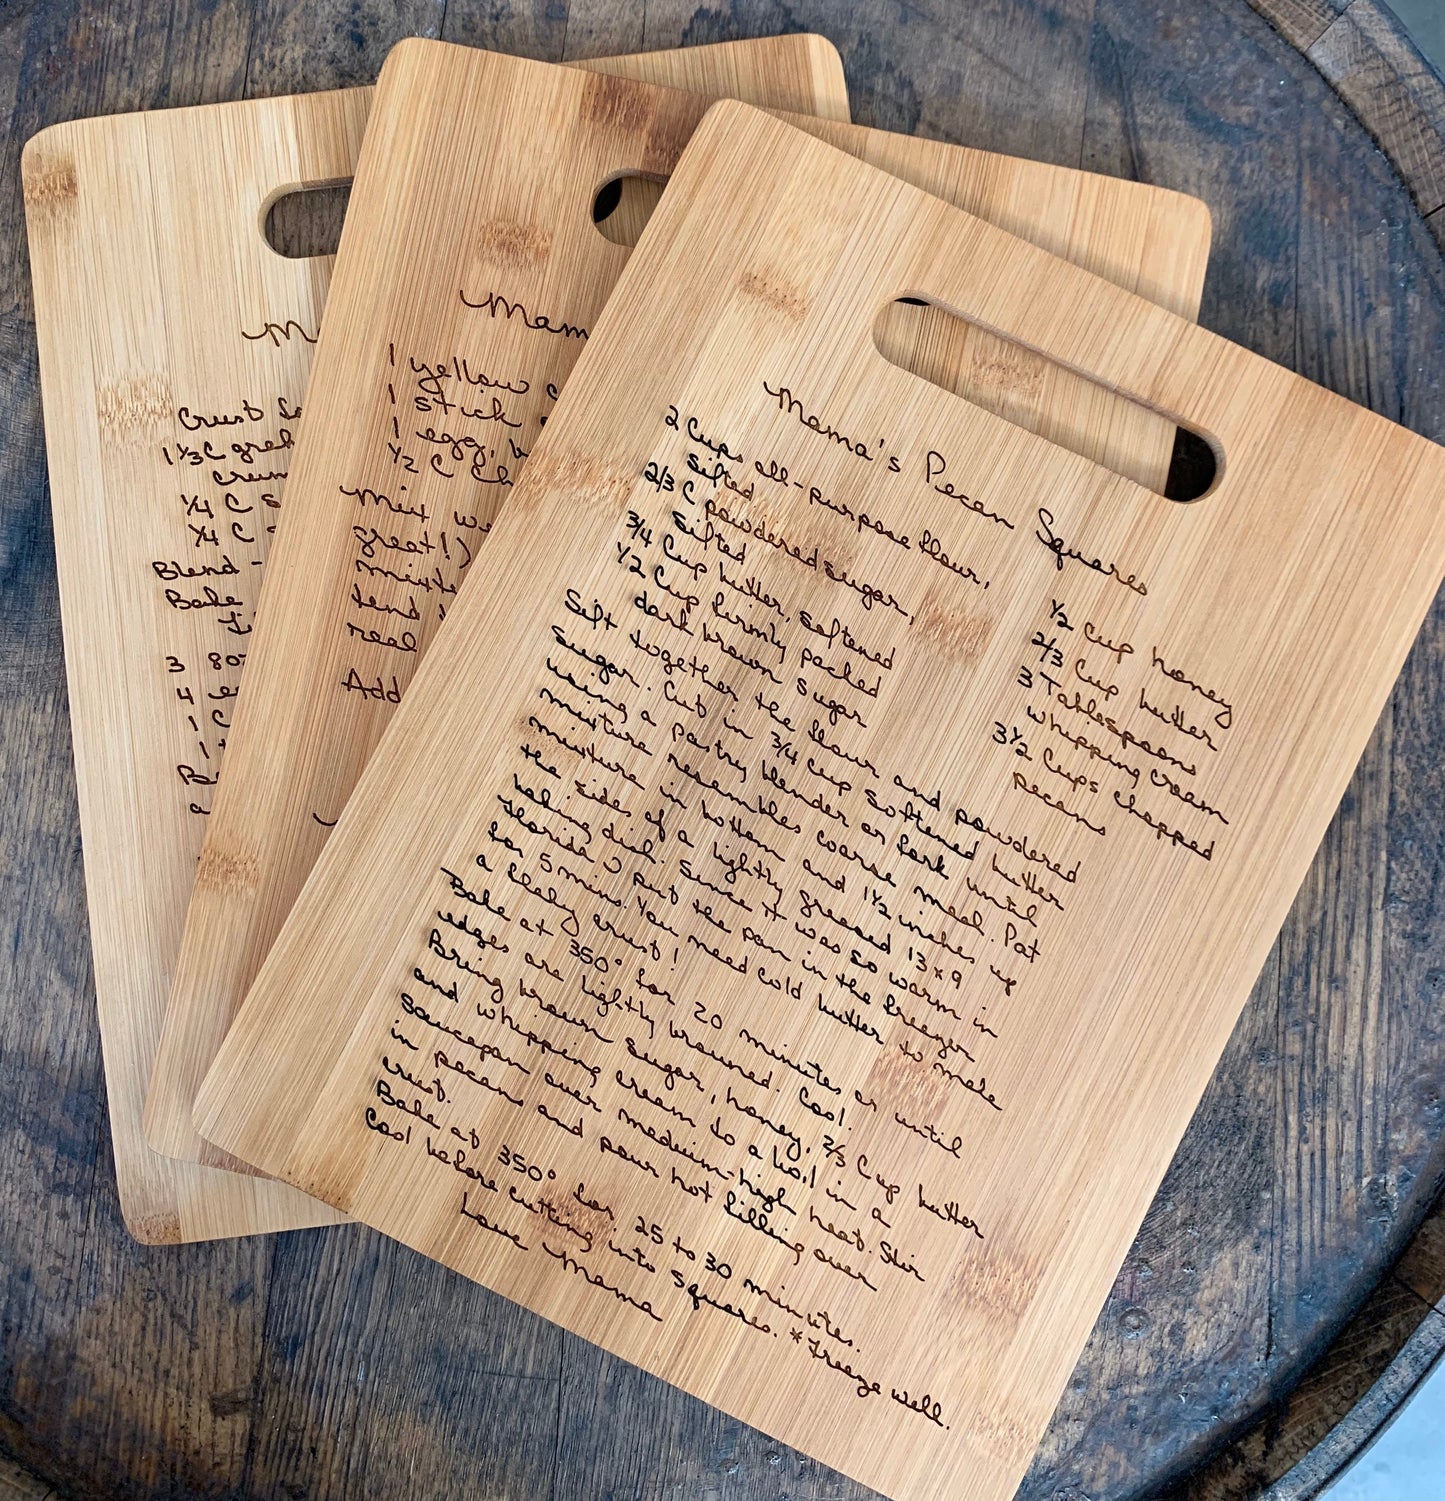 Mama's Pecan Squares
2 Cups all-purpose flour,
sifted
2/3 C powdered sugar,
sifted
3/4 Cup butter, softened
1/2 Cup firmly packed
dark brown sugar
1/2 cup honey
2/3 Cup butter
3 Tablespoons
whipping cream
3 1/2 Cups chopped
pecans
Sift together the flour and powdered
sugar. Cut in 3/4 cup softened butter
using a pastry blender or fork until
mixture resembles coarse meal. Pat
mixture in bottom and 1 1/2 inches up
the sides of a lightly greased 13 x 9
baking dish. Since it was so warm in
Florida I put the pan in the freezer
for 5 mins. You need cold butter to make
a flaky crust!
Bake at 350° for 20 minutes or until
edges are lightly browned. Cool.
Bring brown sugar, honey, 2/3 Cup butter
and whipping cream to a boil in a
saucepan over medium-high heat. Stir
in pecans and pour hot filling over
crust.
Bake at 350° for 25 to 30 minutes.
Cool before cutting into squares. *Freeze well.
Love Mama
Mam
1 yellow c
1 stick
1 egg, b
1/2 C Ch
Mix w
great!)
mixte
tend
real
Add
M
Crust
1 1/3 C grah
crum
1/4 C S
1/4 C
Blend -
Bake
3 8oz
4 e
1 C
1 t
B
a